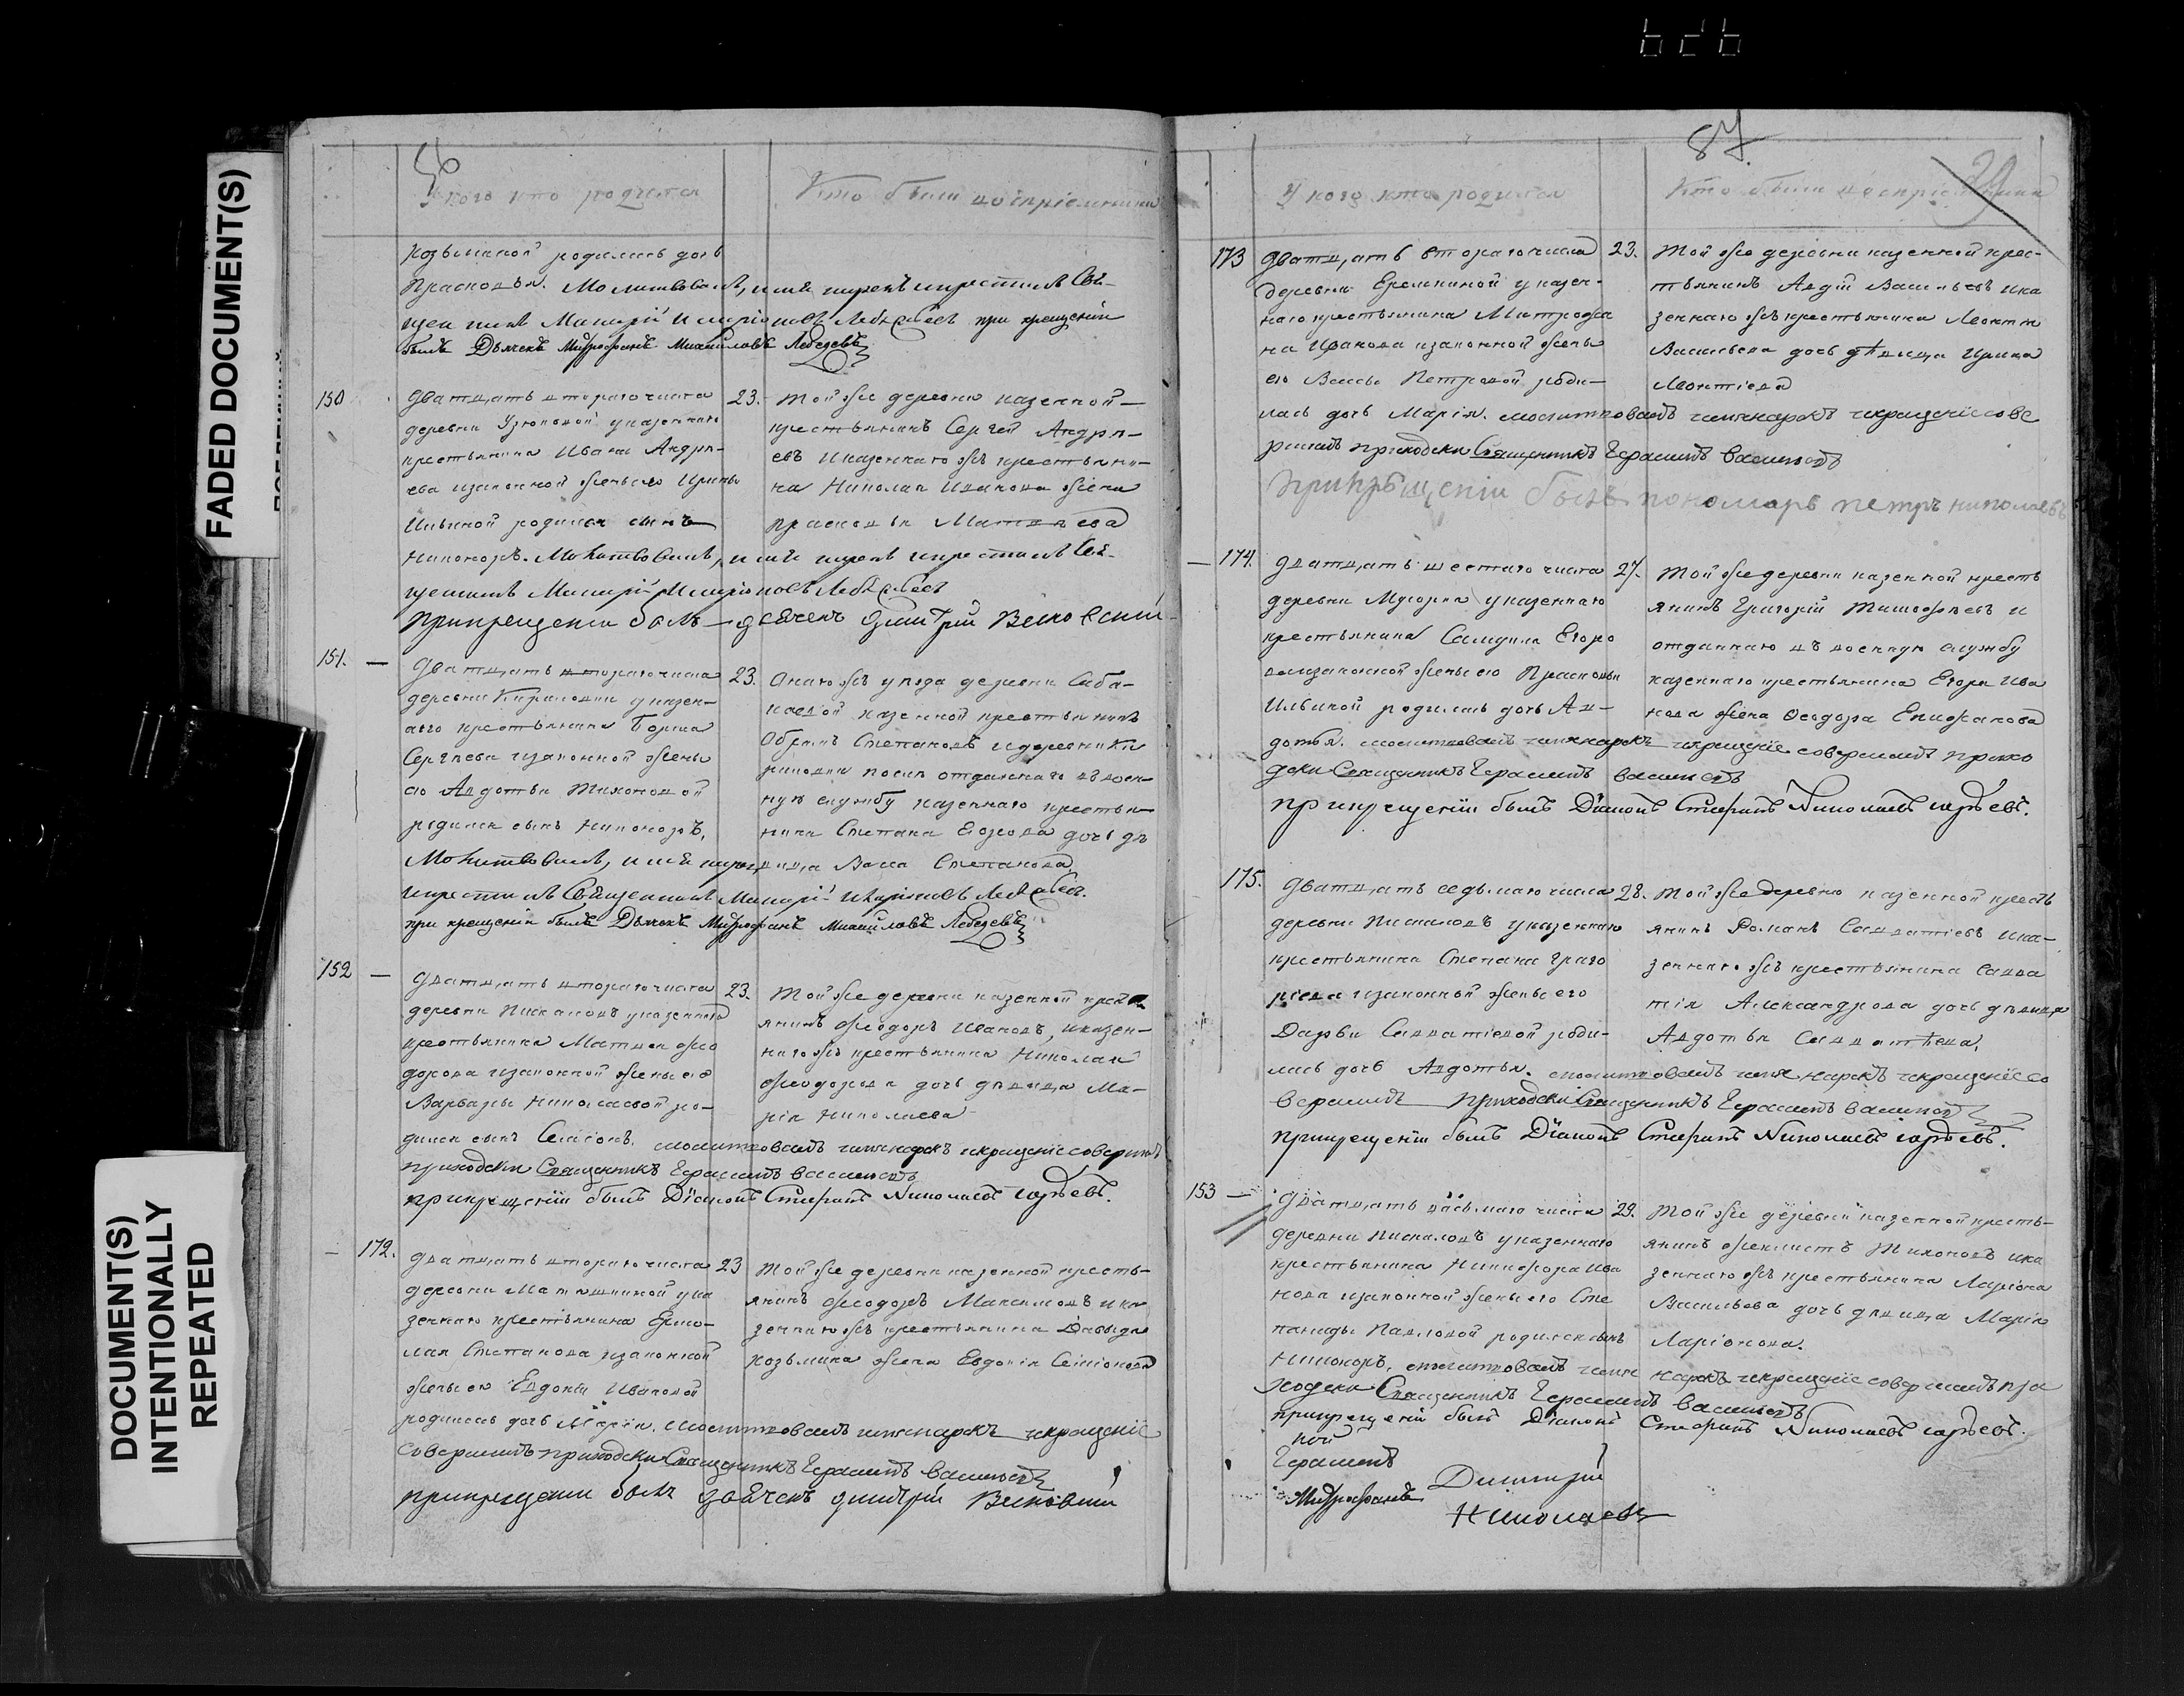 FADED DOCUMENT(S)
DOCUMENT(S)
INTENTIONALLY
REPEATED
У кого кто родился
Кто были восприемники
козьминой родилась дочь
Прасковья. Молитвовалъ, имя нарекъ и крестилъ Свя-
щенникъ Макарій Иларіоновъ при крещеніи
былъ Дьячекъ Митрофанъ Михайловъ Лебедевъ
150
Дватцать втораго числа
деревни Узюковой у казеннаго
крестьянина Ивана Андре-
ева изаконной жены его Ирины
Ильиной родился сынъ
Никоноръ. Молитвовалъ, имя нарекъ и крестилъ Свя-
щенникъ Макарій Иларіоновъ
При крещеніи былъ дьячекъ Дмитрій
23.
Той же деревни казенной
крестьянинъ Сергей Андре-
евъ и казеннаго жъ крестьяни-
на Николая Иванова жена
Прасковья Матвеева
151.
Дватцать втораго числа
деревни у казен-
аго крестьянина Бориса
Сергеева изаконной жены
его Авдотьи Тихоновой
родился сынъ Никоноръ.
Молитвовалъ, имя нарекъ
и крестилъ Священникъ Макарій Иларіоновъ
при крещеніи былъ Дьячекъ Митрофанъ Михайловъ Лебедевъ
23.
Онаго жъ уезда деревни Саба-
каевой казенной крестьянинъ
Степановъ и деревни Ки
отданнаго въ воен-
ную службу казеннаго крестья-
нина Степана Егорова дочь де
вица Васса Степанова
152
Дватцать втораго числа
деревни Пискаловъ у казеннаго
крестьянина Матвея Фео
дорова изаконной жены его
Варвары Николаевой ро-
дился сынъ Симеонъ. молитвовалъ имя нарекъ и крещеніе совершилъ
приходски Священникъ Герасимъ Васильевъ
при крещеніи былъ Діаконъ Стефанъ Николаевъ Юрьевъ.
23.
Той же деревни казенной крест
янинъ Феодоръ Ивановъ, и казен-
наго жъ крестьянина Николая
Феодорова дочь девица Ма-
рія Николаева
172.
Дватцать втораго числа
деревни у ка
зеннаго крестьянина Ермо-
лая Степанова изаконной
жены его Евдокіи Ивановой
родилась дочь Марія. молитвовалъ имя нарекъ и крещеніе
совершилъ приходски Священникъ Герасимъ Васильевъ
при крещеніи былъ дьячекъ Дмитрій
23
Той же деревни казенной кресть-
янинъ Феодоръ Максимовъ и ка
зеннаго жъ крестьянина Давыда
Козьмина жена Евдокія Симіонова
87
У кого кто родился
Кто были восприемники
173
Дватцать втораго числа
деревни Еремкиной у казен-
наго крестьянина Митрофа
на Иванова изаконной жены
его Вассы Петровой роди-
лась дочь Марія. молитвовалъ имя нарекъ и крещеніе сове
ршилъ приходски Священникъ Герасимъ Васильевъ
При крѣщеніи былъ пономарь петръ николаевъ
23.
Той же деревни казенной крес-
тьянинъ Авдій Васильевъ и ка
зеннаго жъ крестьянина Леонтія
Васильева дочь дѣвица Ирина
Леонтіева
174.
Дватцать шестаго числа
деревни Мусорки у казеннаго
крестьянина Самуила Егоро
ва изаконной жены его Прасковьи
Ильиной родилась дочь Ав-
дотья. молитвовалъ имя нарекъ и крещеніе совершилъ прихо
дски Священникъ Герасимъ Васильевъ
при крещеніи былъ Діаконъ Стефанъ Николаевъ Юрьевъ.
27.
Той же деревни казенной кресть
янинъ Григорій Тимофеевъ и
отданнаго въ военную службу
казеннаго крестьянина Егора Ива
нова жена Феодора Епифанова
175.
Дватцать седьмаго числа
деревни Пискаловъ у казеннаго
крестьянина Степана Григо
ріева изаконной жены его
Дарьи Савватіевой роди-
лась дочь Авдотья. молитвовалъ имя нарекъ и крещеніе со
вершилъ приходски Священникъ Герасимъ Васильевъ
при крещеніи былъ Діаконъ Стефанъ Николаевъ Юрьевъ.
28.
Той же деревни казенной кресть
янинъ Романъ Савватіевъ и ка-
зеннаго жъ крестьянина Савва
тія Александрова дочь девица
Авдотья Савватѣева.
153
Дватцать восьмаго числа
деревни Пискаловъ у казеннаго
крестьянина Никифора Ива
нова изаконной жены его Сте
паниды Павловой родился сынъ
Никоноръ. молитвовалъ имя нарекъ и крещеніе совершилъ при
ходски Священникъ Герасимъ Васильевъ
при крещеніи былъ Діаконъ Стефанъ Николаевъ Юрьевъ.
29.
Той же деревни казенной кресть-
янинъ Феклистъ Тихоновъ и ка
зеннаго жъ крестьянина Ларіона
Васильева дочь девица Марія
Ларіонова.
Герасимъ
Митрофанъ
Димитрій
Николаевъ